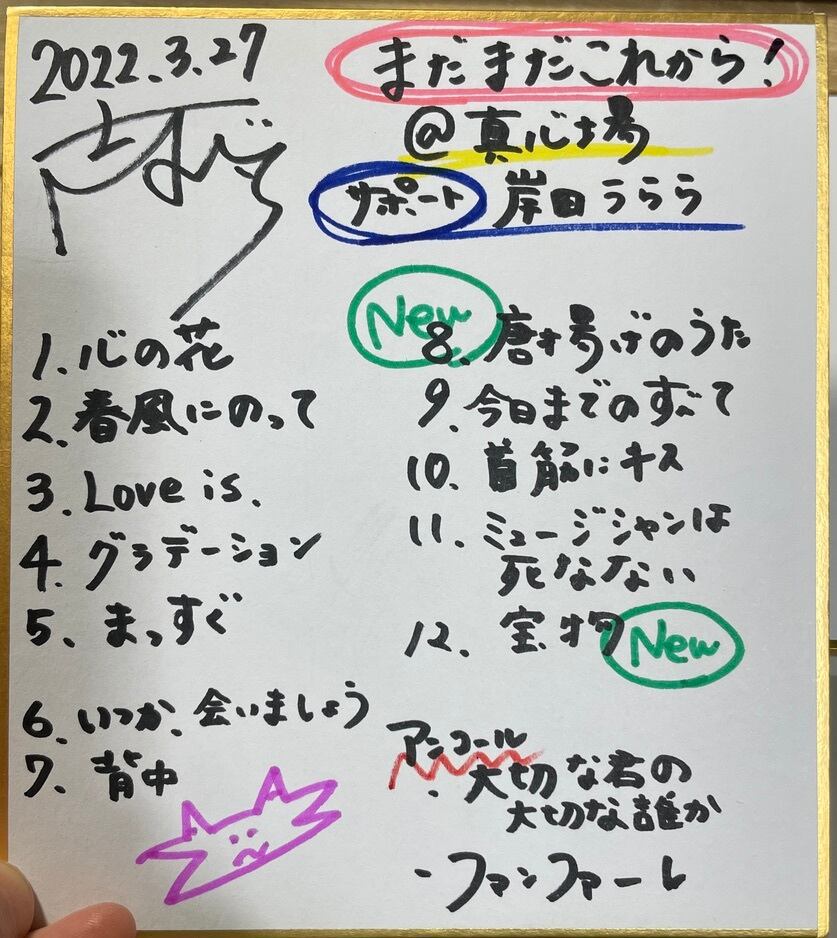 2022.3.27
まだまだこれから！
@真心
サポート 岸田うらら
1. 心の花
2. 春風にのって
3. Love is.
4. グラデーション
5. まっすぐ
6. いつか、会いましょう
7. 背中
New
8. 唐揚げのうた
9. 今日までのすべて
10. 首筋にキス
11. ミュージシャンは
死なない
12. 宝物 New
アンコール
・大切な君の
大切な誰か
・ファンファーレ